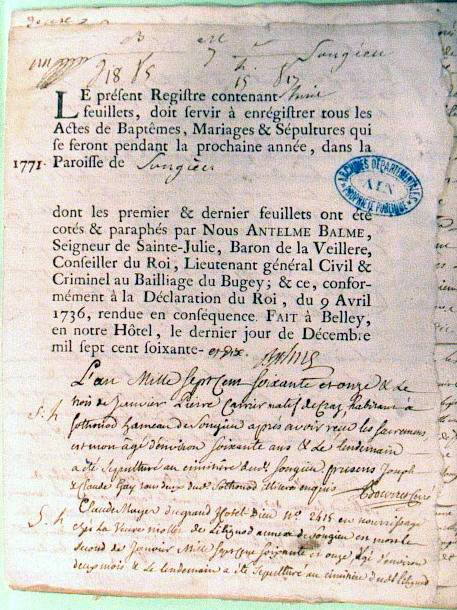 Songieu
LE présent Registre contenant huit
feuillets, doit servir à enrégistrer tous les
Actes de Baptêmes, Mariages & Sépultures qui
se feront pendant la prochaine année, dans la
1771. Paroisse de Songieu
ARCHIVES DÉPARTEMENTALES
AIN
PROPRIÉTÉ PUBLIQUE
dont les premier & dernier feuillets ont été
cotés & paraphés par Nous ANTELME BALME,
Seigneur de Sainte-Julie, Baron de la Veillere,
Conseiller du Roi, Lieutenant général Civil &
Criminel au Bailliage du Bugey; & ce, confor-
mément à la Déclaration du Roi, du 9 Avril
1736, rendue en conséquence. FAIT à Belley,
en notre Hôtel, le dernier jour de Décembre
mil sept cent soixante- et dix.
L'an Mille Sept Cent Soixante et onze & Le
mois de Janvier Pierre Carrier natif de habitant à
S. h Sothonod hameau de Songieu après avoir reçu les sacremens
est mort âgé d'environ soixante ans & Le lendemain
a été sepulturé au cimetière dud. Songieu présens Joseph
& Claude Gay tous deux dud. Sothonod enquis
S. h Claude Mayer du grand Hotel Dieu N° 2415 en nourrissage
chés La Veuve de Lilignod annexe de Songieu est mort le
second de Janvier Mille Sept cent soixante et onze âgé d'environ
deux mois & Le lendemain a été sepulturé au cimetière dud. Lilignod